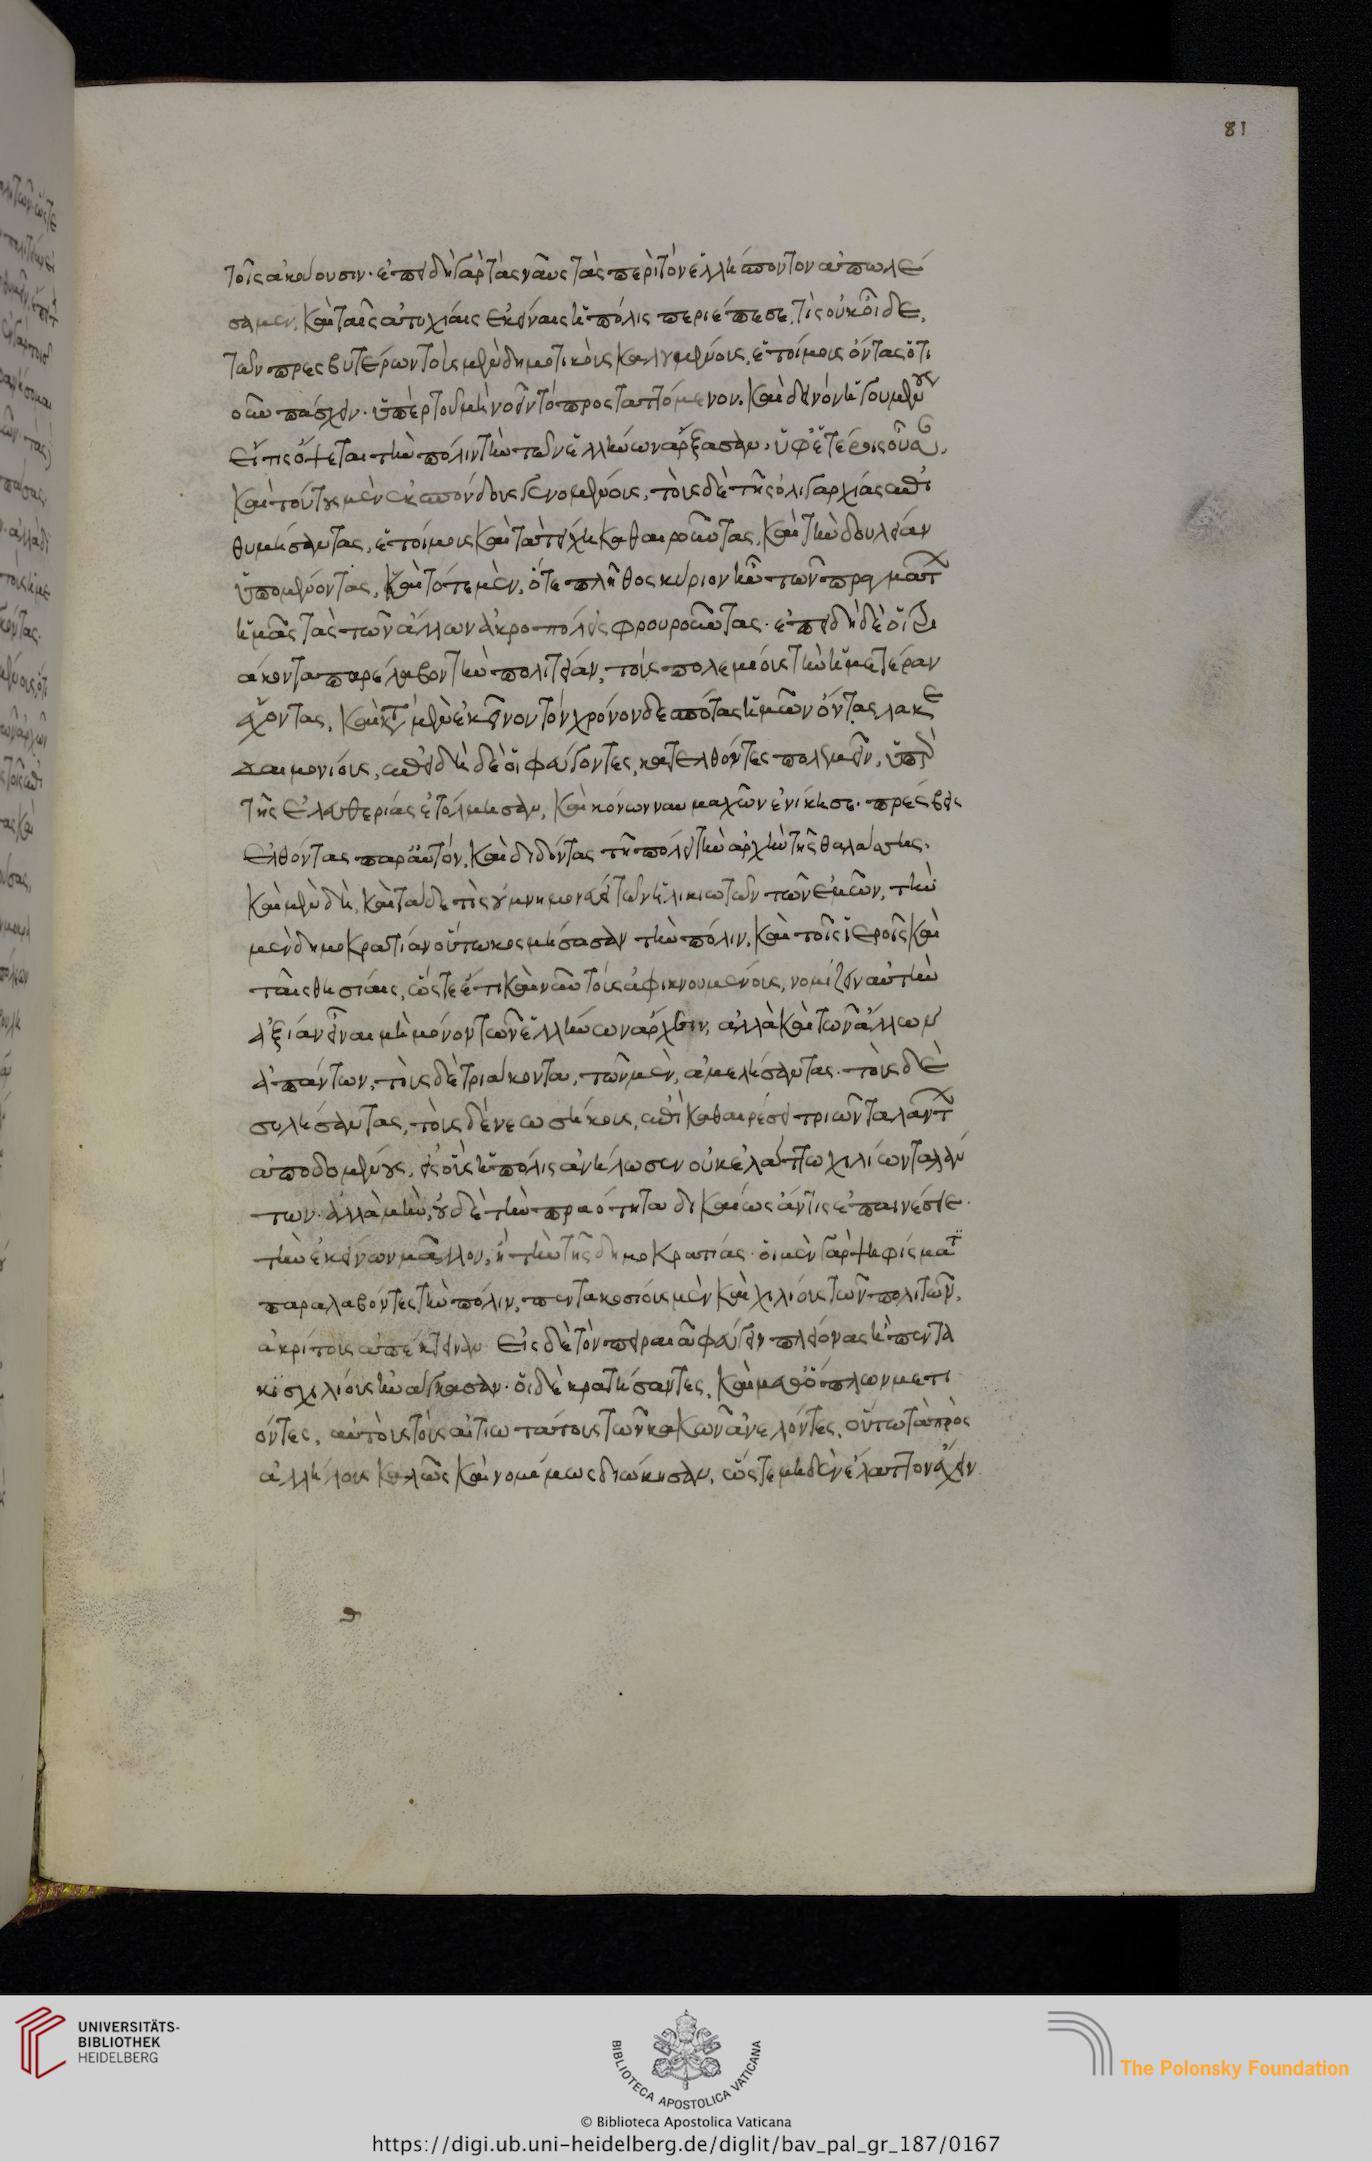 τοῖς ἀκούουσιν· ἐπειδὴ γὰρ τὰς ναῦς τὰς περὶ τὸν ἑλλήσποντον ἀπωλέ
σαμεν, καὶ ταῖς ἀτυχίαις ἐκείναις ἡ πόλις περιέπεσε, τίς οὐκ οἶδε,
τῶν πρεσβυτέρων τοὺς μὲν δημοτικοὺς καλουμένους, ἑτοίμους ὄντας ὁτι
οῦν πάσχειν· ὑπὲρ τοῦ μὴ ποιεῖν τὸ προσταττόμενον. καὶ δεινὸν ἡγουμένους
εἴ τις ὄψεται τὴν πόλιν τὴν τῶν ἑλλήνων ἄρξασαν, ὑφ' ἑτέροις οὖσαν,
καὶ τούτους μὲν ἐκσπόνδους γενομένους, τοὺς δὲ τῆς ὀλιγαρχίας ἐπι
θυμήσαντας, ἑτοίμους καὶ τὰ τείχη καθαιροῦντας, καὶ τὴν δουλείαν
ὑπομένοντας, καὶ τότε μὲν, ὅτε πλῆθος κύριον ἦν τῶν πραγμάτων
ἡμᾶς τὰς τῶν ἄλλων ἀκροπόλεις φρουροῦντας· ἐπειδὴ δὲ οἱ τρι
άκοντα παρέλαβον τὴν πολιτείαν, τοὺς πολεμίους τὴν ἡμετέραν
ἔχοντας, καὶ κατὰ μὲν ἐκεῖνον τὸν χρόνον δεσπότας ἡμῶν ὄντας λακε
δαιμονίους, ἐπειδὴ δὲ οἱ φεύγοντες, κατελθόντες πολεμεῖν, ὑπὲρ
τῆς ἐλευθερίας ἐτόλμησαν, καὶ κόνων ναυμαχῶν ἐνίκησε· πρέσβεις
ἐλθόντας παρ' αὐτόν, καὶ διδόντας τῇ πόλει τὴν ἀρχὴν τῆς θαλάσσης.
καὶ μὲν δὴ, καὶ τάδε τίς οὐ μνημονεύει τῶν ἡλικιωτῶν τῶν ἐμῶν, τὴν
μὲν δημοκρατίαν οὕτω κοσμήσασαν τὴν πόλιν, καὶ τοῖς ἱεροῖς καὶ
ταῖς θυσίαις, ὥστε ἔτι καὶ νῦν τοὺς ἀφικνουμένους, νομίζειν αὐτὴν
ἀξίαν εἶναι μὴ μόνον τῶν ἑλλήνων ἄρχειν, ἀλλὰ καὶ τῶν ἄλλων
ἁπάντων, τοὺς δὲ τριάκοντα, τῶν μὲν, ἀμελήσαντας· τοὺς δὲ
συλήσαντας, τοὺς δὲ νεωσοίκους, ἐπὶ καθαιρέσει τριῶν ταλάντων
ἀποδομένους, εἰς οὓς ἡ πόλις ἀνήλωσεν οὐκ ἐλάττω χιλίων ταλάν
των· ἀλλὰ μὴν, οὐδὲ τὴν πραότητα δικαίως ἄν τις ἐπαινέσειε·
τὴν ἐκείνων μᾶλλον, ἢ τὴν τῆς δημοκρατίας· οἱ μὲν γὰρ ψηφίσματι
παραλαβόντες τὴν πόλιν, πεντακοσίους μὲν καὶ χιλίους τῶν πολιτῶν,
ἀκρίτους ἀπέκτειναν· εἰς δὲ τὸν πειραιᾶ φυγεῖν πλείονας ἢ πεντα
κισχιλίους ἠνάγκασαν· οἱ δὲ κρατήσαντες, καὶ μεθ' ὅπλων μετι
όντες, αὐτοὺς τοὺς αἰτιωτάτους τῶν κακῶν ἀνελόντες, οὕτω τὰ πρὸς
ἀλλήλους καλῶς καὶ νομίμως διώκησαν, ὥστε μηδὲν ἔλαττον ἔχειν
81
UNIVERSITÄTS-
BIBLIOTHEK
HEIDELBERG
BIBLIOTECA APOSTOLICA VATICANA
The Polonsky Foundation
© Biblioteca Apostolica Vaticana
https://digi.ub.uni-heidelberg.de/diglit/bav_pal_gr_187/0167